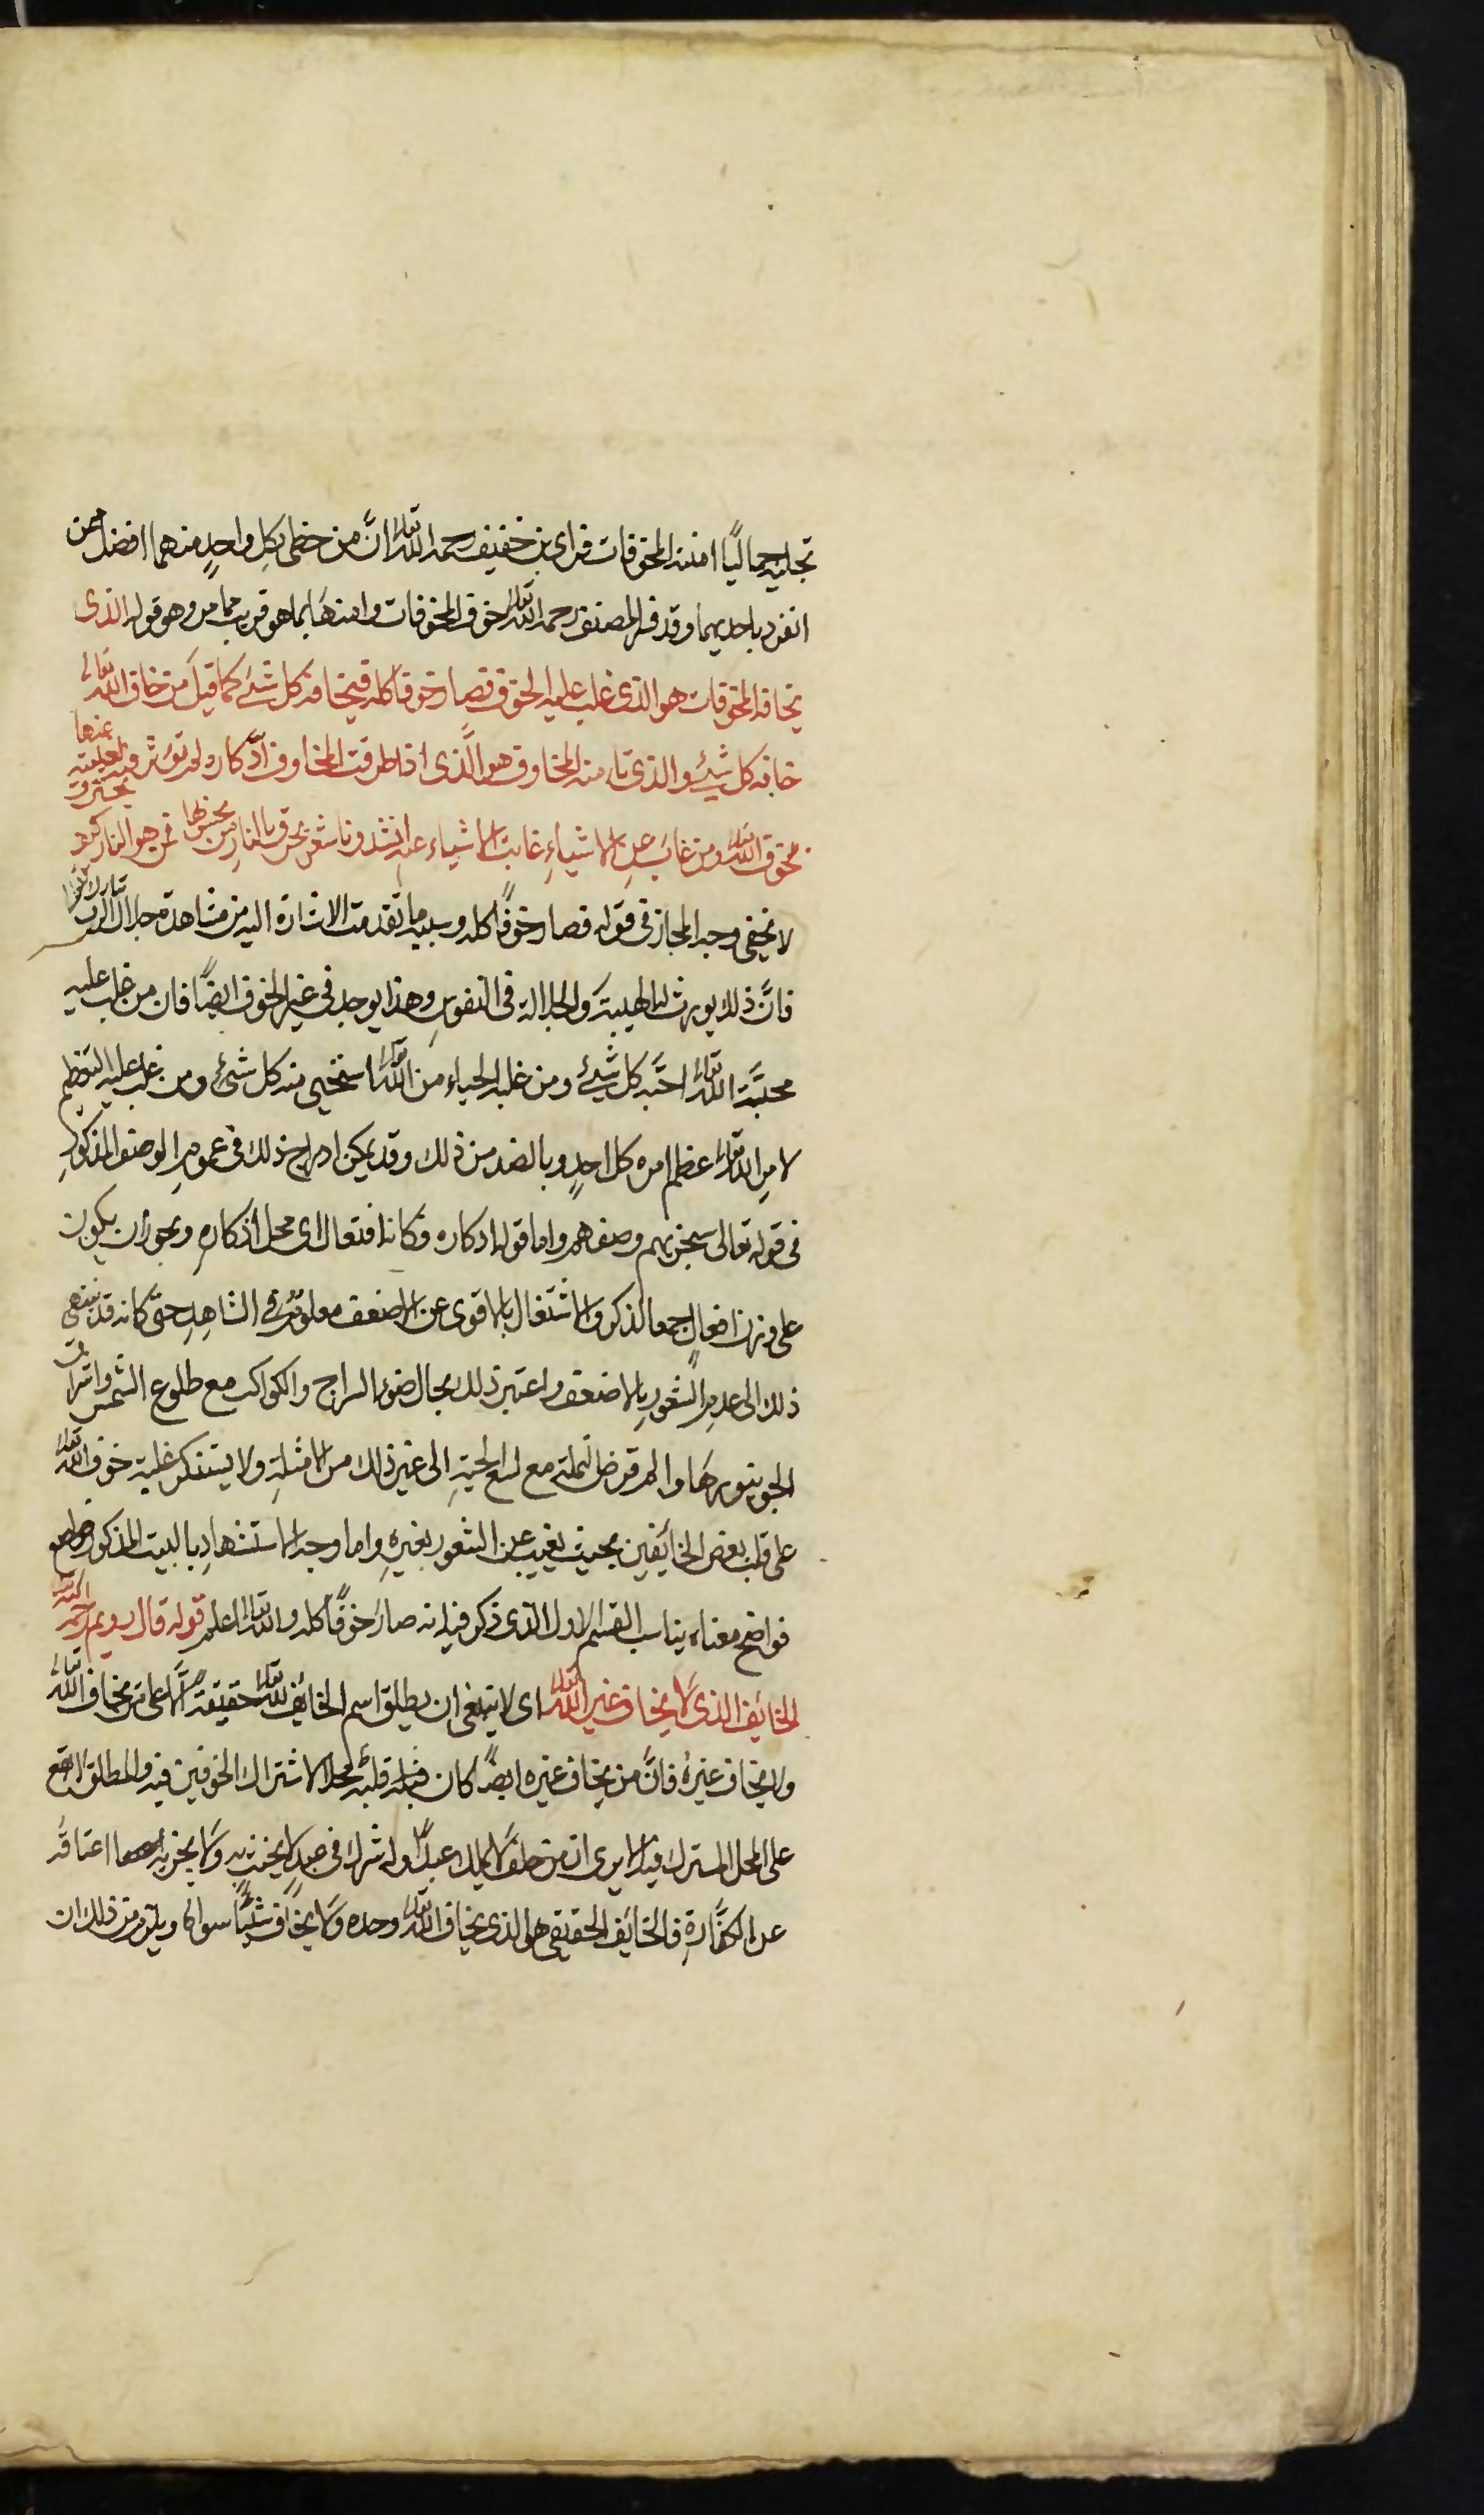 تجليه جماليًّا امنته المخوفات فراى بن خفيف رحمه الله تعالى انّ من حظى بكل واحدٍ منهما افضل ممن
انفرد باحديهما وقد فسر المصنف رحمه الله تعالى خوف المخوفات وامنها بما هو قريب مما مر وهو قوله الذى
تخافه المخوفات هو الذى غلب عليه الخوف فصار خوفا كله فيخافه كل شئ كما قيل من خاف الله تعالى
خافه كل شئ والذى تامنه المخاوف هو الَّذى اذا طرقت المخاوف اذكاره لم تؤثر فيه لغيبته عنها
بخوف الله تعالى ومن غاب عن الاشياءِ غابت الاشياء عنه انشدونا شعر يحرق بالنار من يحس بها فمن هو النار كيف يحترق
لا يخفى وجه المجاز فى قوله فصار خوفًا كله وسببه ما تقدمت الاشارة اليه من مشاهدة جلال الرب تبارك وتعالى
فانَّ ذلك يورث الهيبة والجلالة فى النفوسِ وهذا يوجد فى غير الخوف ايضًا فان من غلب عليه
محبَّة الله تعالى احبَّه كل شئ ومن غلبه الحياء من الله تعالى استحيى منه كل شئ ومن غلب عليه التعظيم
لامرِ الله تعالى عظم امره كل احدٍ وبالضد من ذلك وقد يمكن ادراج ذلك فى عمومِ الوصف المذكورِ
فى قوله تعالى سيجزيهم وصفهم واما قوله ادكاره فكانه افتعال اى محل اذكارهِ ويجوز ان يكون
على وزن افعالٍ جمعا لذكر والاشتغال بالاقوى عن الاضعف معلوم فى الشاهِد حتى كانه قد ينتهى
ذلك الى عدمِ الشعورِ بالاضعف واعتبر ذلك بحال ضوء السراج والكواكب مع طلوع الشمس واشراق
الجو بنورها والم قرص نملة مع لسع الحيةِ الى غير ذلك من الامثلةِ ولا يستنكر غلبة خوف الله تعالى
على قلب بعض الخائفين بحيث يغيب عن الشعور بغيرهِ واما وجه الاستشهادِ بالبيت المذكور
فواضح معناه يناسب القسم الاول الذى ذكر فيه انه صار خوفًا كله والله تعالى اعلم قوله قال رويم رحمه الله تعالى
الخائف الذى لا يخاف غير الله تعالى اى لا ينبغى ان يطلق اسم الخائف لله تعالى حقيقة الَّا على من يخاف الله تعالى
ولا يخاف غيرهُ فانَّ من يخاف غيره ايضًا كان قلبه محلا لاشتراك الخوفين فيه والمطلق لا يقع
على المحل المشترك فيه الا يرى ان من حلف لا يملك عبدًا وله شرك فى عبدٍ لا يحنث به ولا يجزيه اعتاقه
عن الكفَّارةِ فالخائف الحقيقى هو الذى يخاف الله تعالى وحده ولا يخاف شيئًا سواه ويلزم من ذلك ان